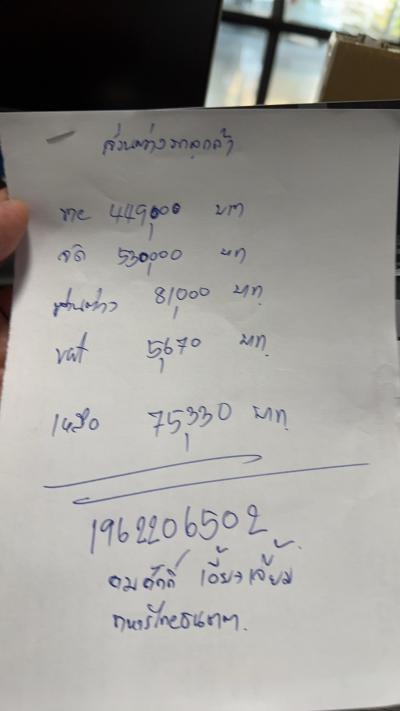 ส่วนต่างรถลูกค้า
ขาย 449,000 บาท
จัด 530,000 บาท
ส่วนต่าง 81,000 บาท
vat 5,670 บาท
เหลือ 75,330 บาท
1962206502
สมศักดิ์ เอี้ยวเจี้ยม
ทหารไทยธนชาต